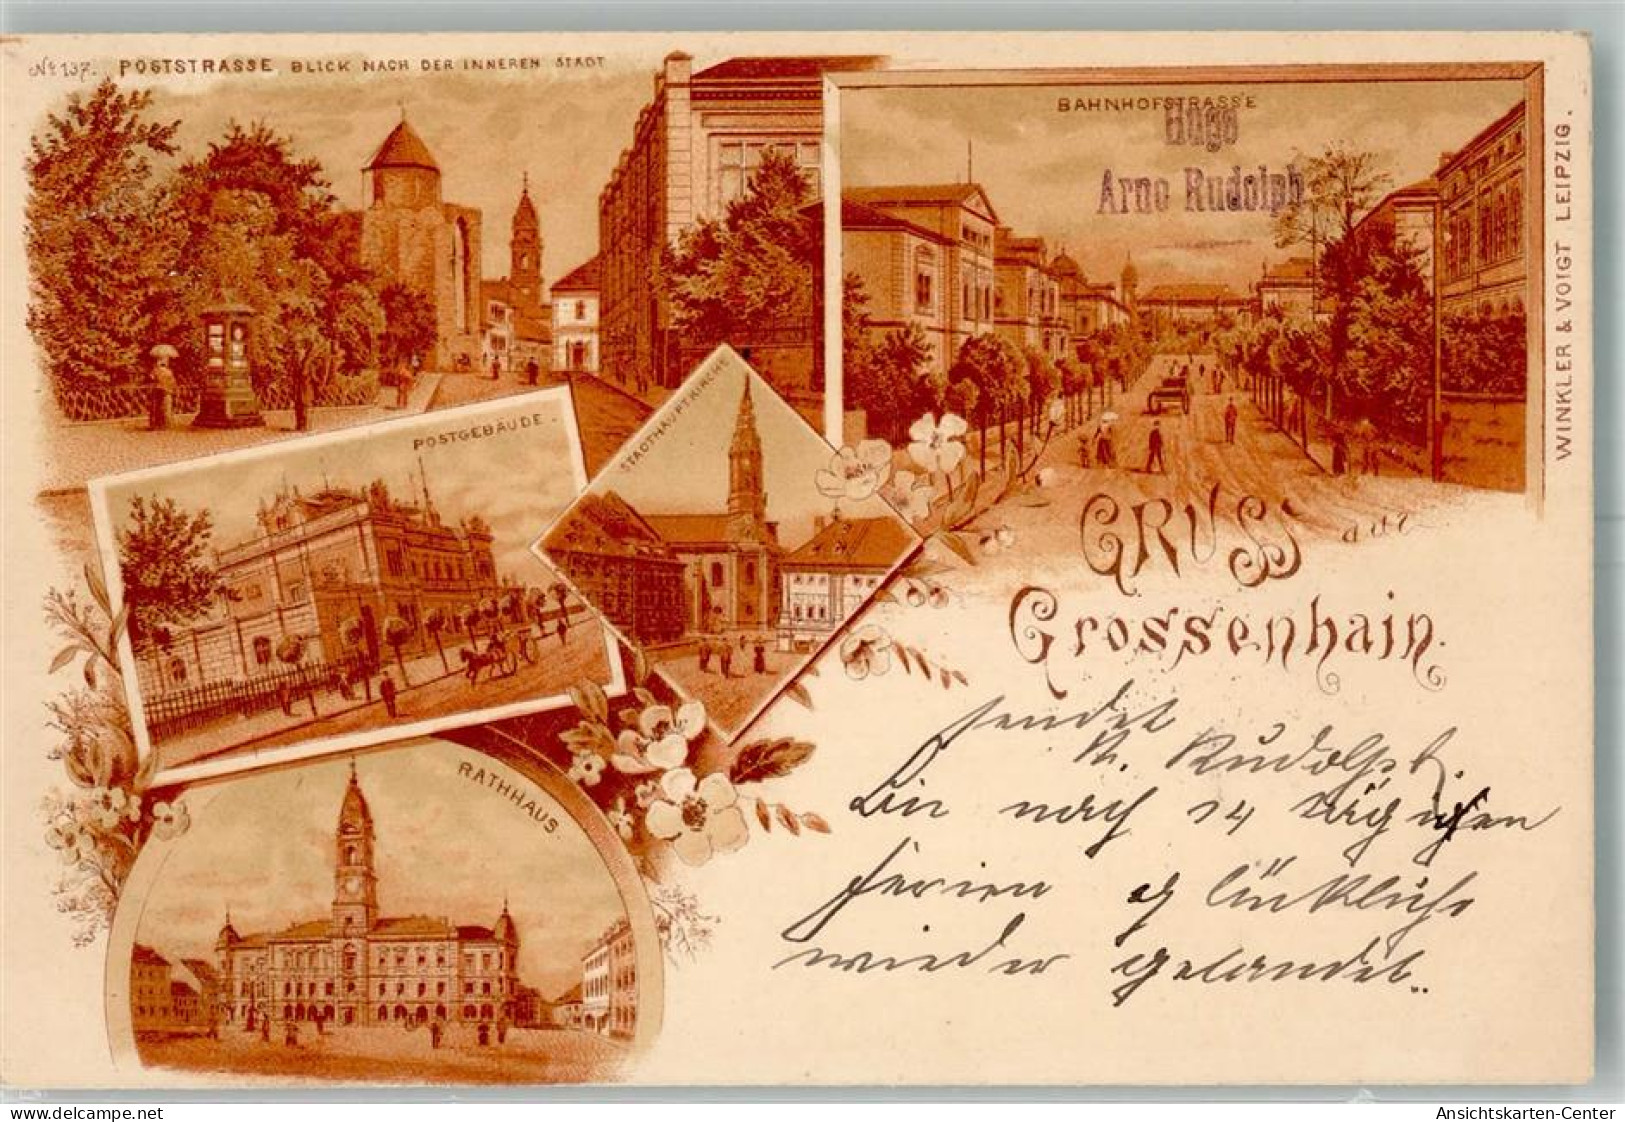 No 137. POSTSTRASSE BLICK NACH DER INNEREN STADT
BAHNHOFSTRASSE
Hugo
Arno Rudolph
WINKLER & VOIGT LEIPZIG.
POSTGEBÄUDE.
STADTHAUPTKIRCHE
GRUSS aus
Grossenhain.
RATHHAUS.
sendet
A. Rudolph.
Bin nach 14 tägigen
Ferien glücklich
wieder gelandet.
delcampe.net
Ansichtskarten-Center